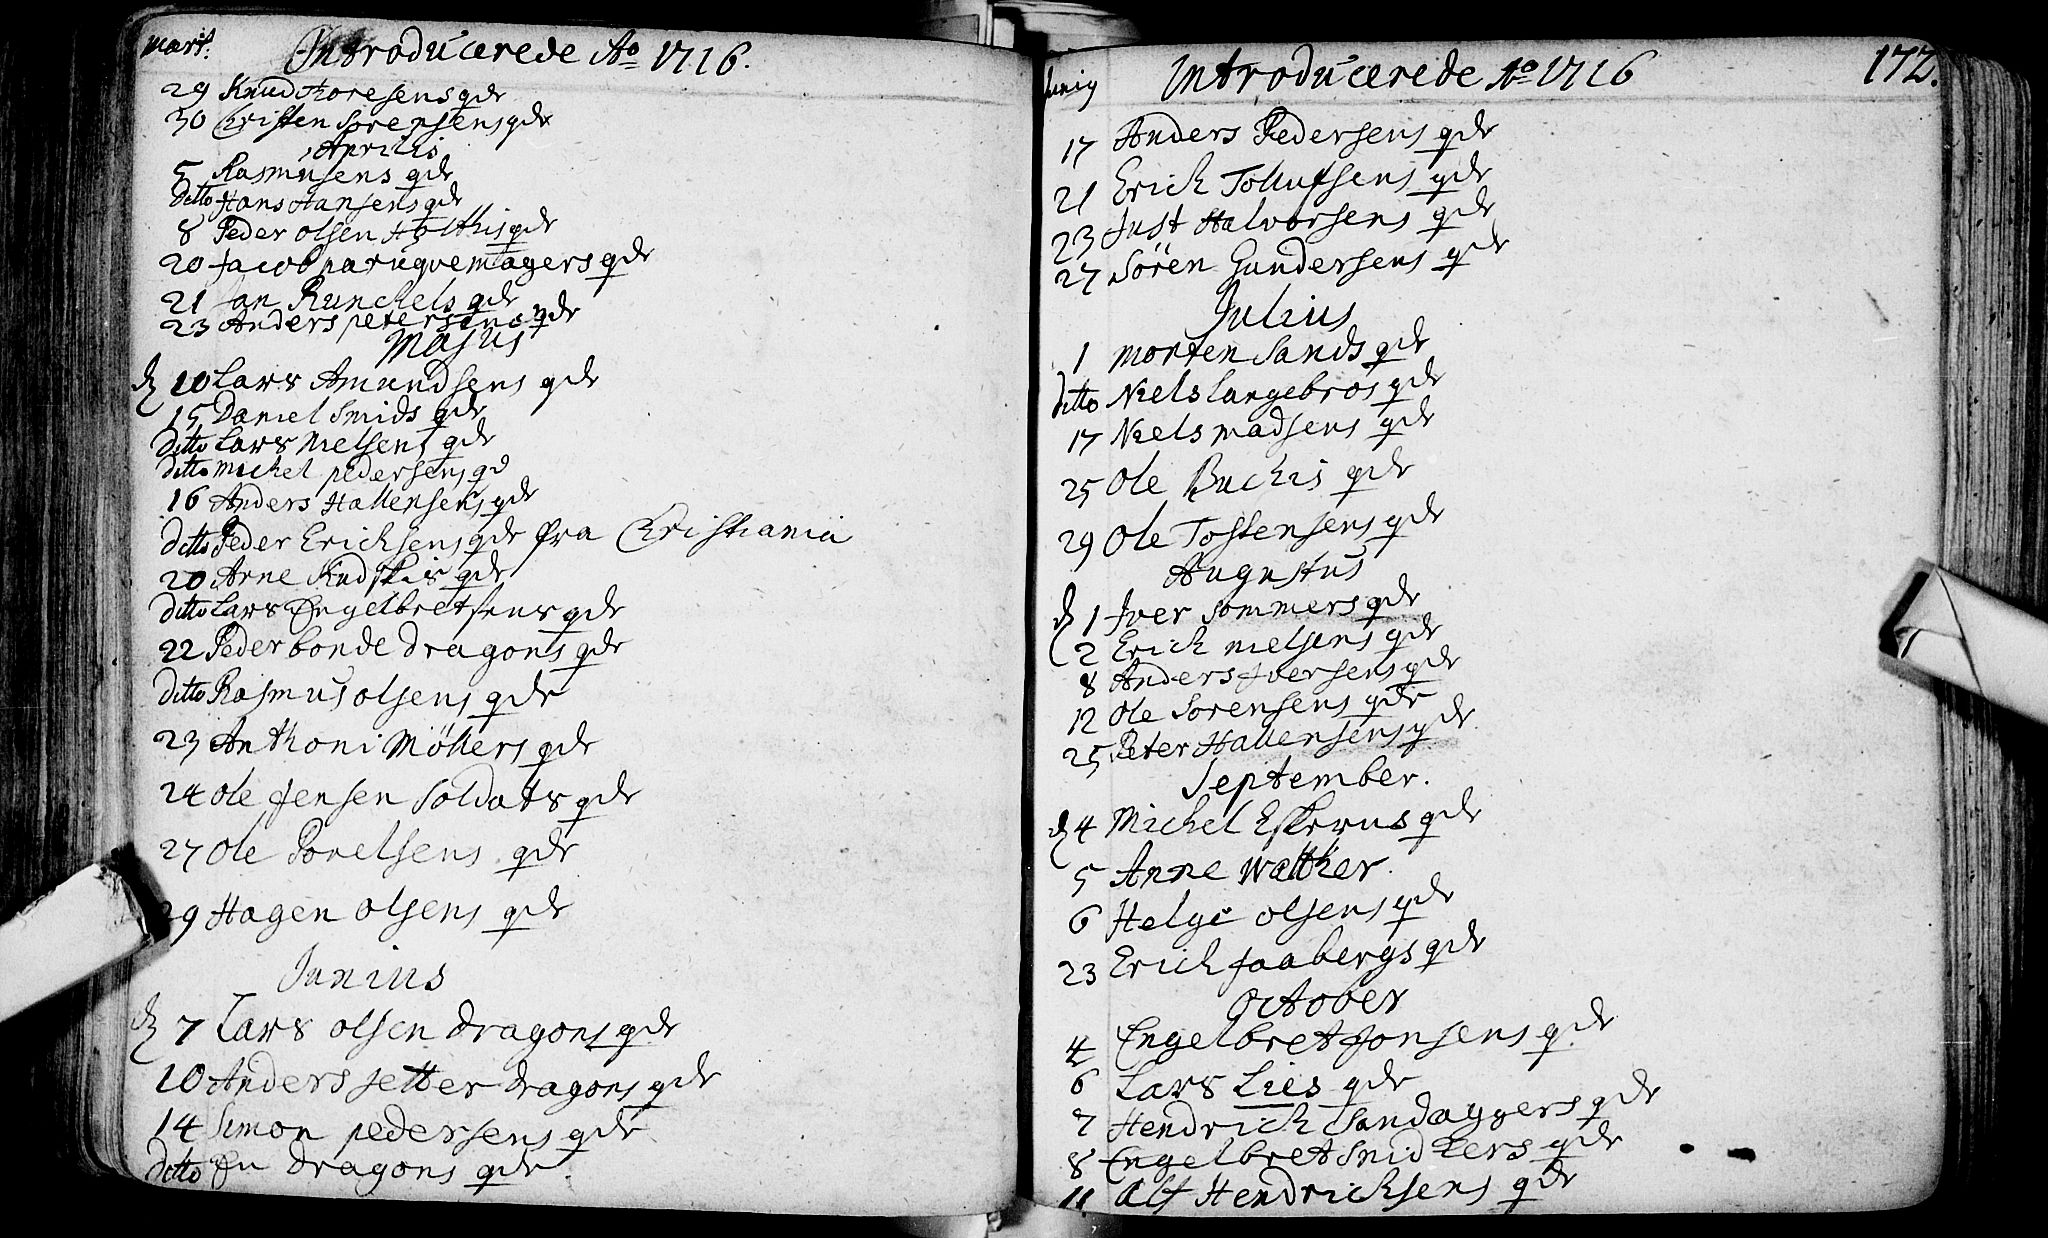 Marti. Introducerede Ao 1716.
29 Knud thoresens qdr
30 Christen Sorensens qdr
Aprilis
5 Rasmusens qdr
ditto Hans Hansens qdr
8 Peder olsen Holthis qdr
20 Jacob paruqvemagers qdr
21 Jan Runckels qdr
23 Anders petersens qdr
Majus
d 10 Lars Amundsens qdr
15 Daniel Smids qdr
ditto Lars Nielsens qdr
ditto michel pedersens qd
16 Anders Hallensens qdr
ditto Peder Ericksens qdr fra Christiania
20 Arne qdr
ditto Lars Engelbretsens qdr
22 Peder bonde dragons qdr
ditto Rasmus olsens qdr
23 Anthoni Möllers qdr
24 Ole Jensen Soldats qdr
27 Ole Porelsens qdr
29 Hagen olsens qdr
Junius
d 7 Lars olsen dragons qdr
10 Anders setter dragons qdr
14 Simon pedersens qdr
ditto En dragons qdr
Junig Introducerede Ao 1716 172.
17 Anders Pedersens qdr
21 Erich Tollufsens qdr
23 Just Halvorsens qdr
27 Sören Gundersens qdr
Julius
1 morten Sands qdr
ditto Niels Langebros qdr
17 Niels madsens qdr
25 Ole Buchis qdr
29 Ole Tostensens qdr
Augustus
d 1 Jver Sommers qdr
2 Erich nielsens qdr
8 Anders Jversens qdr
12 Ole Sorensens qdr
25 Peter Hallensens qdr
September.
d 4 Michel qdr
5 Anne Walther.
6 Helge olsens qdr
23 Erich faabergs qdr
October
4 Engelbret Jonsens qdr
6 Lars Lies qdr
7 Hendrich Sandaggers qdr
8 Engelbret Snidkers qdr
11 Alf Hendricksens qdr